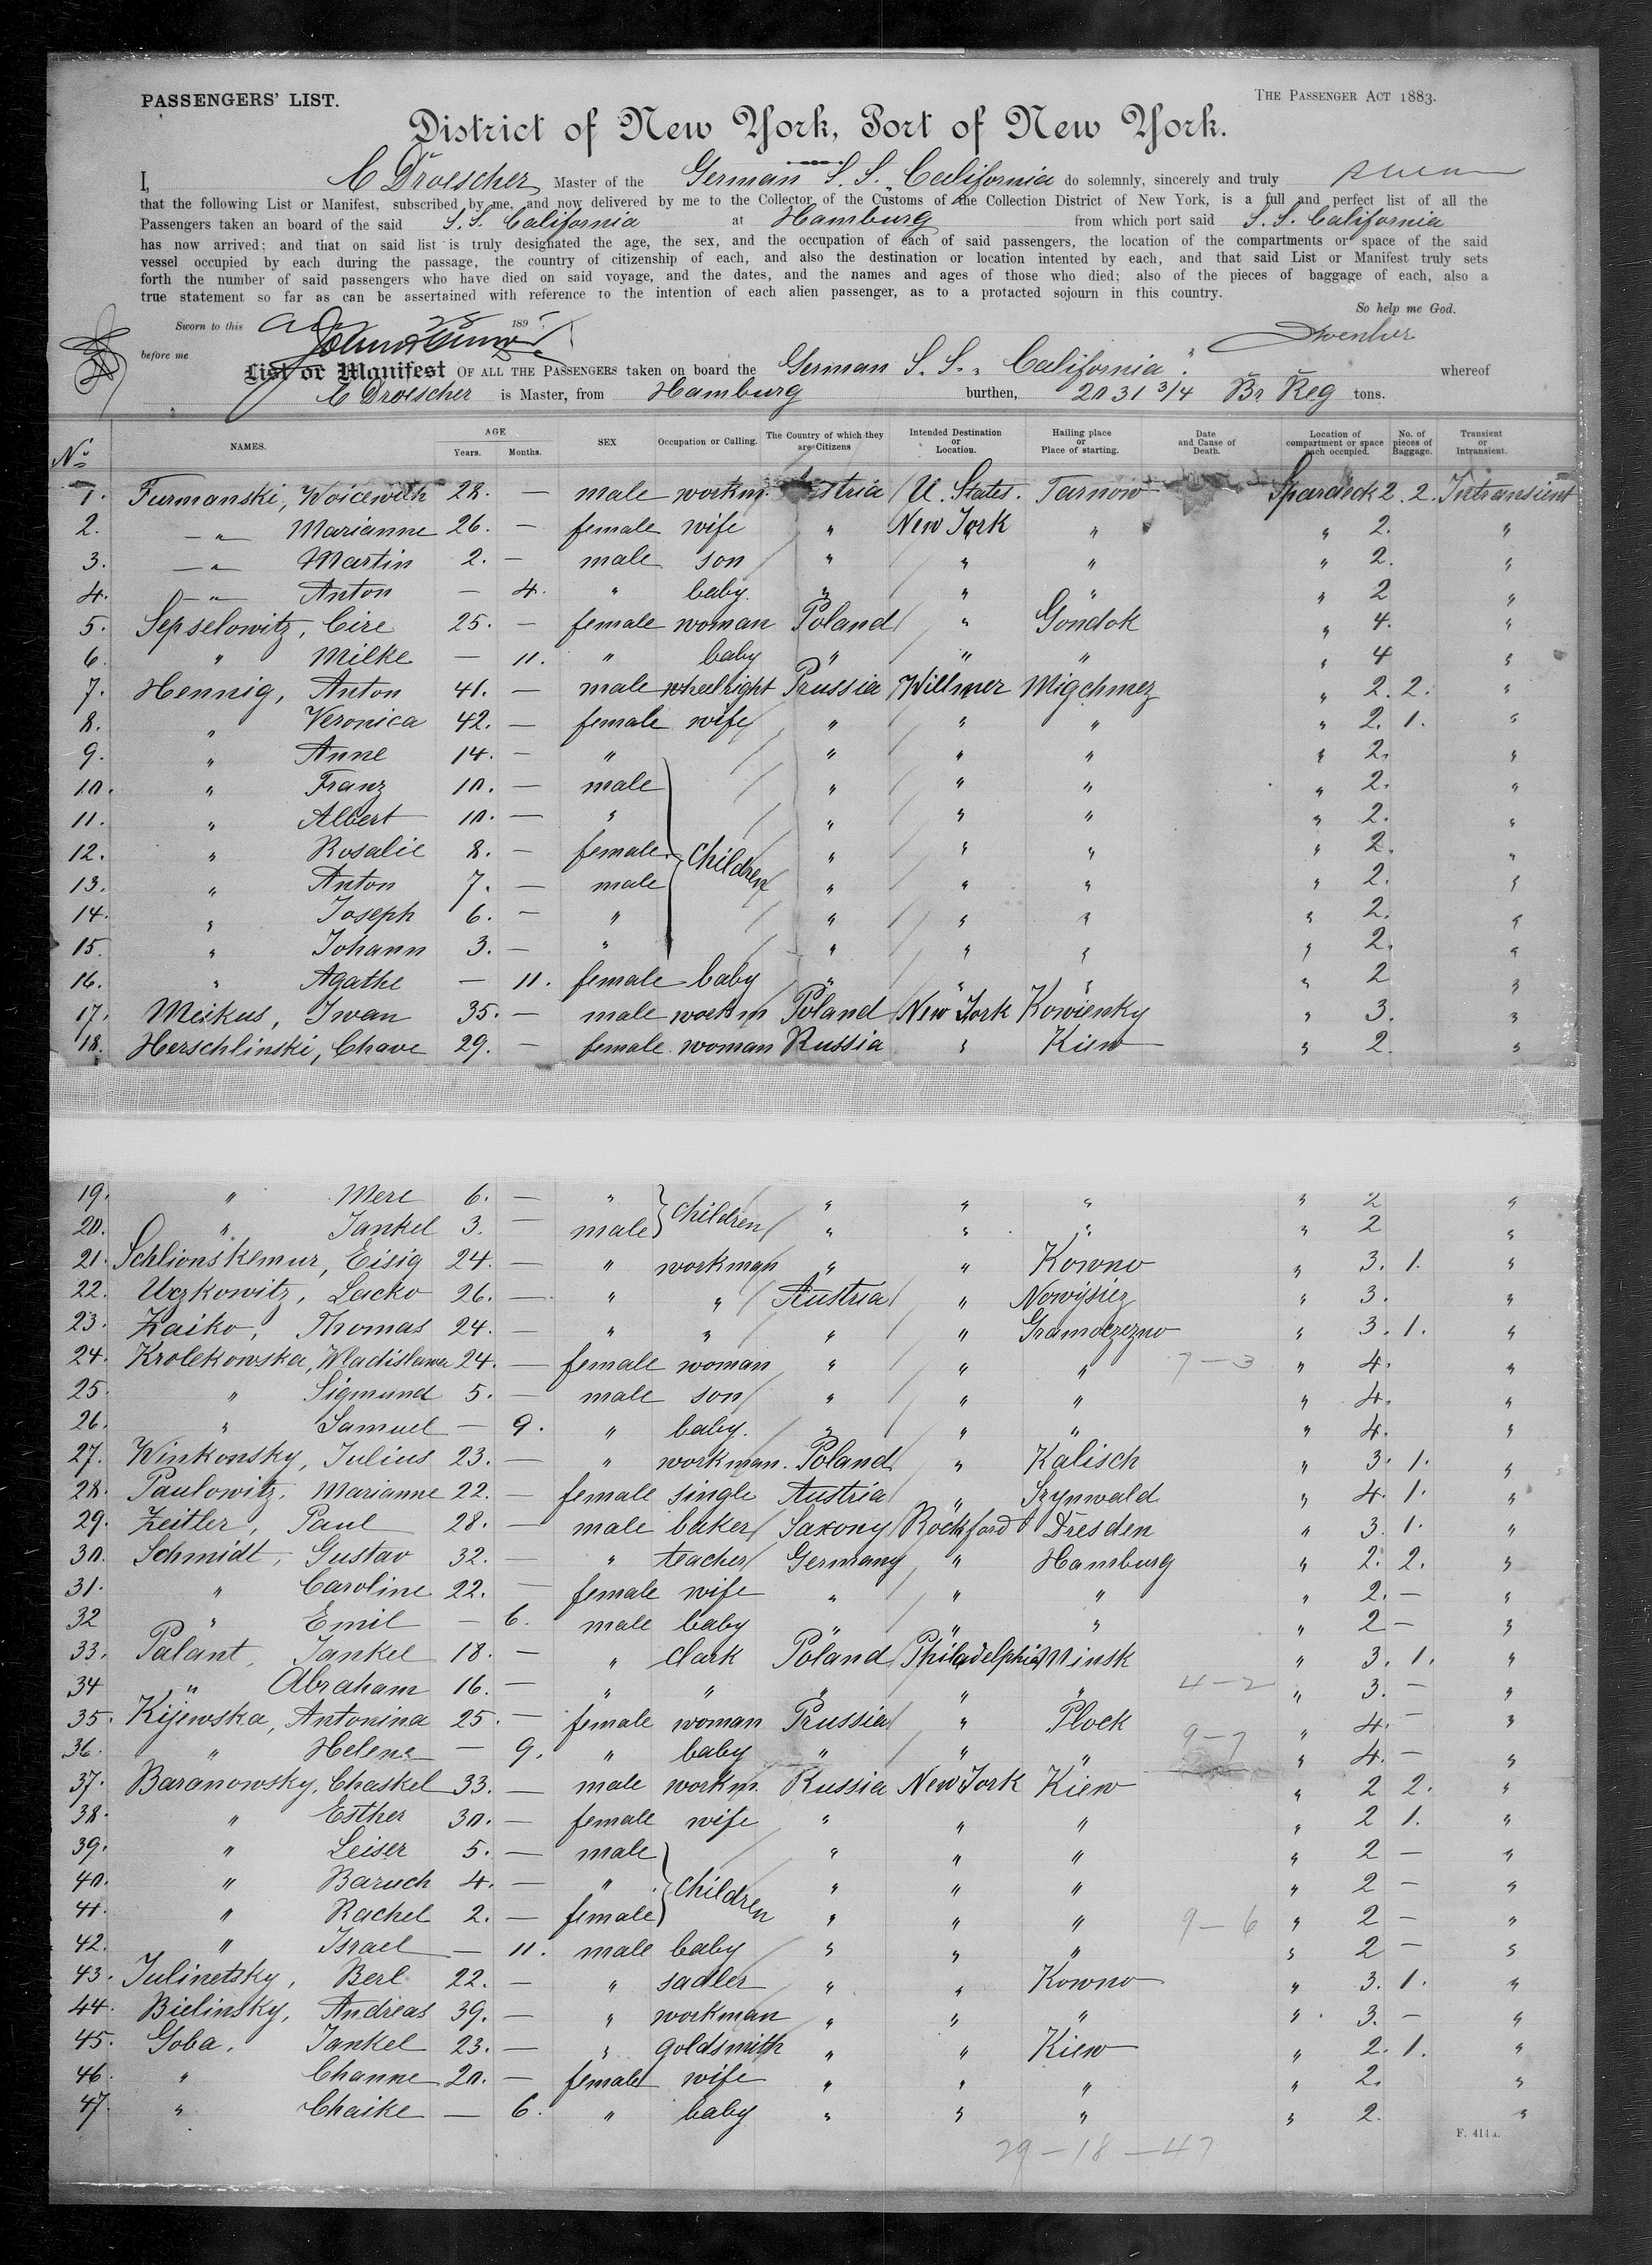 PASSENGERS' LIST.
THE PASSENGER ACT 1883.
District of New York, Port of New York.
I, C Droescher Master of the German S. S. „California do solemnly, sincerely and truly
that the following List or Manifest, subscribed by me, and now delivered by me to the Collector of the Customs of the Collection District of New York, is a full and perfect list of all the
Passengers taken an board of the said S. S. California at Hamburg from which port said S. S. California
has now arrived; and that on said list is truly designated the age, the sex, and the occupation of each of said passengers, the location of the compartments or space of the said
vessel occupied by each during the passage, the country of citizenship of each, and also the destination or location intented by each, and that said List or Manifest truly sets
forth the number of said passengers who have died on said voyage, and the dates, and the names and ages of those who died; also of the pieces of baggage of each, also a
true statement so far as can be assertained with reference to the intention of each alien passenger, as to a protacted sojourn in this country.
So help me God.
Sworn to this 28 189
before me
List or Manifest OF ALL THE PASSENGERS taken on board the German S. S. „California" whereof
C Droescher is Master, from Hamburg burthen, 2031 3/4 Br Reg tons.
No NAMES. AGE Years. Months. SEX Occupation or Calling. The Country of which they are Citizens Intended Destination or Location. Hailing place or Place of starting. Date and Cause of Death. Location of compartment or space each occupied. No. of pieces of Baggage. Transient or Intransient.
1. Furmanski, Woicewich 28. — male workm. Austria U. States. Tarnow Spardeck 2. 2. Intransient
2. —"— Marianne 26. — female wife " New York " " 2. "
3. —"— Martin 2. — male son " " " " 2. "
4. —"— Anton — 4. " baby. " " " " 2 "
5. Sepselowitz, Cire 25. — female woman Poland " Gondok " 4. "
6. " Milke — 11. " baby " " " " 4 "
7. Hennig, Anton 41. — male wheelright Prussia Willmer Migchmez " 2. 2. "
8. " Veronica 42. — female wife " " " " 2. 1. "
9. " Anne 14. — " " " " " 2. "
10. " Franz 10. — male " " " " 2. "
11. " Albert 10. — " " " " " 2. "
12. " Rosalie 8. — female Children " " " " 2. "
13. " Anton 7. — male " " " " 2. "
14. " Joseph 6. — " " " " " 2. "
15. " Johann 3. — " " " " " 2. "
16. " Agathe — 11. female baby " " " " 2 "
17. Meikus, Iwan 35. — male workm Poland New York Kowienky " 3. "
18. Herschlinski, Chave 29. — female woman Russia " Kiew " 2. "
19. " Mere 6. — " Children " " " " 2 "
20. " Jankel 3. — male " " " " 2 "
21. Schlionskemur, Eisig 24. — " workman " " Kowno " 3. 1. "
22. Uczkowitz, Lacko 26. — " " Austria " Nowysiez " 3. "
23. Zaiko, Thomas 24. — " " " " Gramoczezno " 3. 1. "
24. Krolekowska, Wladislawa 24. — female woman " " " 7—3 " 4. "
25. " Sigmund 5. — male son " " " " 4. "
26. " Samuel — 9. " baby. " " " " 4. "
27. Winkonsky, Julius 23. — " workman. Poland " Kalisch " 3. 1. "
28. Paulowitz, Marianne 22. — female single Austria " Szynwald " 4. 1. "
29. Zeitler, Paul 28. — male baker Saxony Rockford Dresden " 3. 1. "
30. Schmidt, Gustav 32. — " teacher Germany " Hamburg " 2. 2. "
31. " Caroline 22. — female wife " " " " 2. — "
32 " Emil — 6. male baby " " " " 2 — "
33. Palant, Jankel 18. — " clark Poland Philadelphia Minsk " 3. 1. "
34 " Abraham 16. — " " " " " 4—2 " 3. — "
35. Kijewska, Antonina 25. — female woman Prussia " Plock " 4. — "
36. " Helene — 9. " baby " " " 9—7 " 4. — "
37. Baranowsky, Chaskel 33. — male workm. Russia New York Kiew " 2 2. "
38. " Esther 30. — female wife " " " " 2 1. "
39. " Leiser 5. — male " " " " 2 — "
40. " Baruch 4. — " Children " " " " 2 — "
41. " Rachel 2. — female " " " 9—6 " 2 — "
42. " Israel — 11. male baby " " " " 2 — "
43. Julinetsky, Berl 22. — " sadler " " Kowno " 3. 1. "
44. Bielinsky, Andreas 39. — " workman " " " " 3. — "
45. Goba, Jankel 23. — " goldsmith " " Kiew " 2. 1. "
46. " Channe 20. — female wife " " " " 2. "
47. " Chaike — 6. " baby " " " " 2. "
29—18—47
F. 411a.